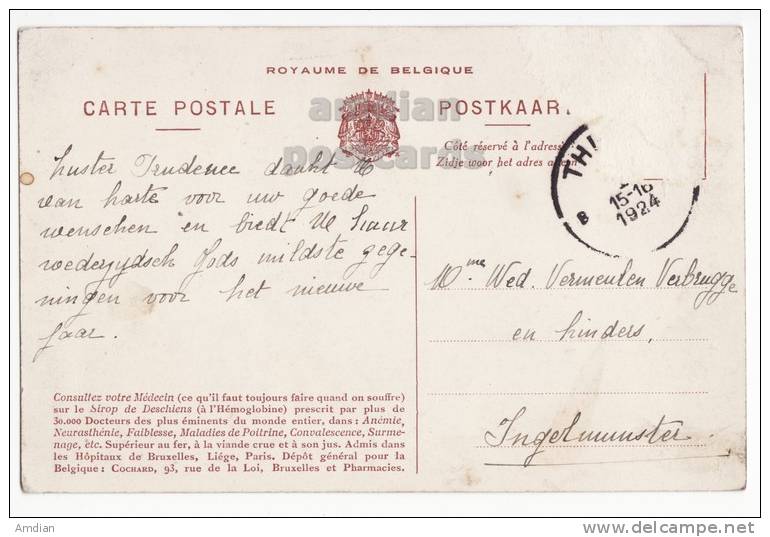 ROYAUME DE BELGIQUE
CARTE POSTALE
POSTKAAR
amdian
postcards
Côté réservé à l'adresse
Zijde voor het adres alleen
THI
15-16
1924
B
Zuster Prudence dankt U
van harte voor uw goede
wenschen en biedt U haar
wederzydsch Gods mildste gege-
ningen voor het nieuwe
jaar.
Mme Wed. Vermeulen Verbrugge
en kinders,
Ingelmunster
Consultez votre Médecin (ce qu'il faut toujours faire quand on souffre)
sur le Sirop de Deschiens (à l'Hémoglobine) prescrit par plus de
30.000 Docteurs des plus éminents du monde entier, dans : Anémie,
Neurasthénie, Faiblesse, Maladies de Poitrine, Convalescence, Surme-
nage, etc. Supérieur au fer, à la viande crue et à son jus. Admis dans
les Hôpitaux de Bruxelles, Liége, Paris. Dépôt général pour la
Belgique : COCHARD, 93, rue de la Loi, Bruxelles et Pharmacies.
Amdian
www.delcampe.net